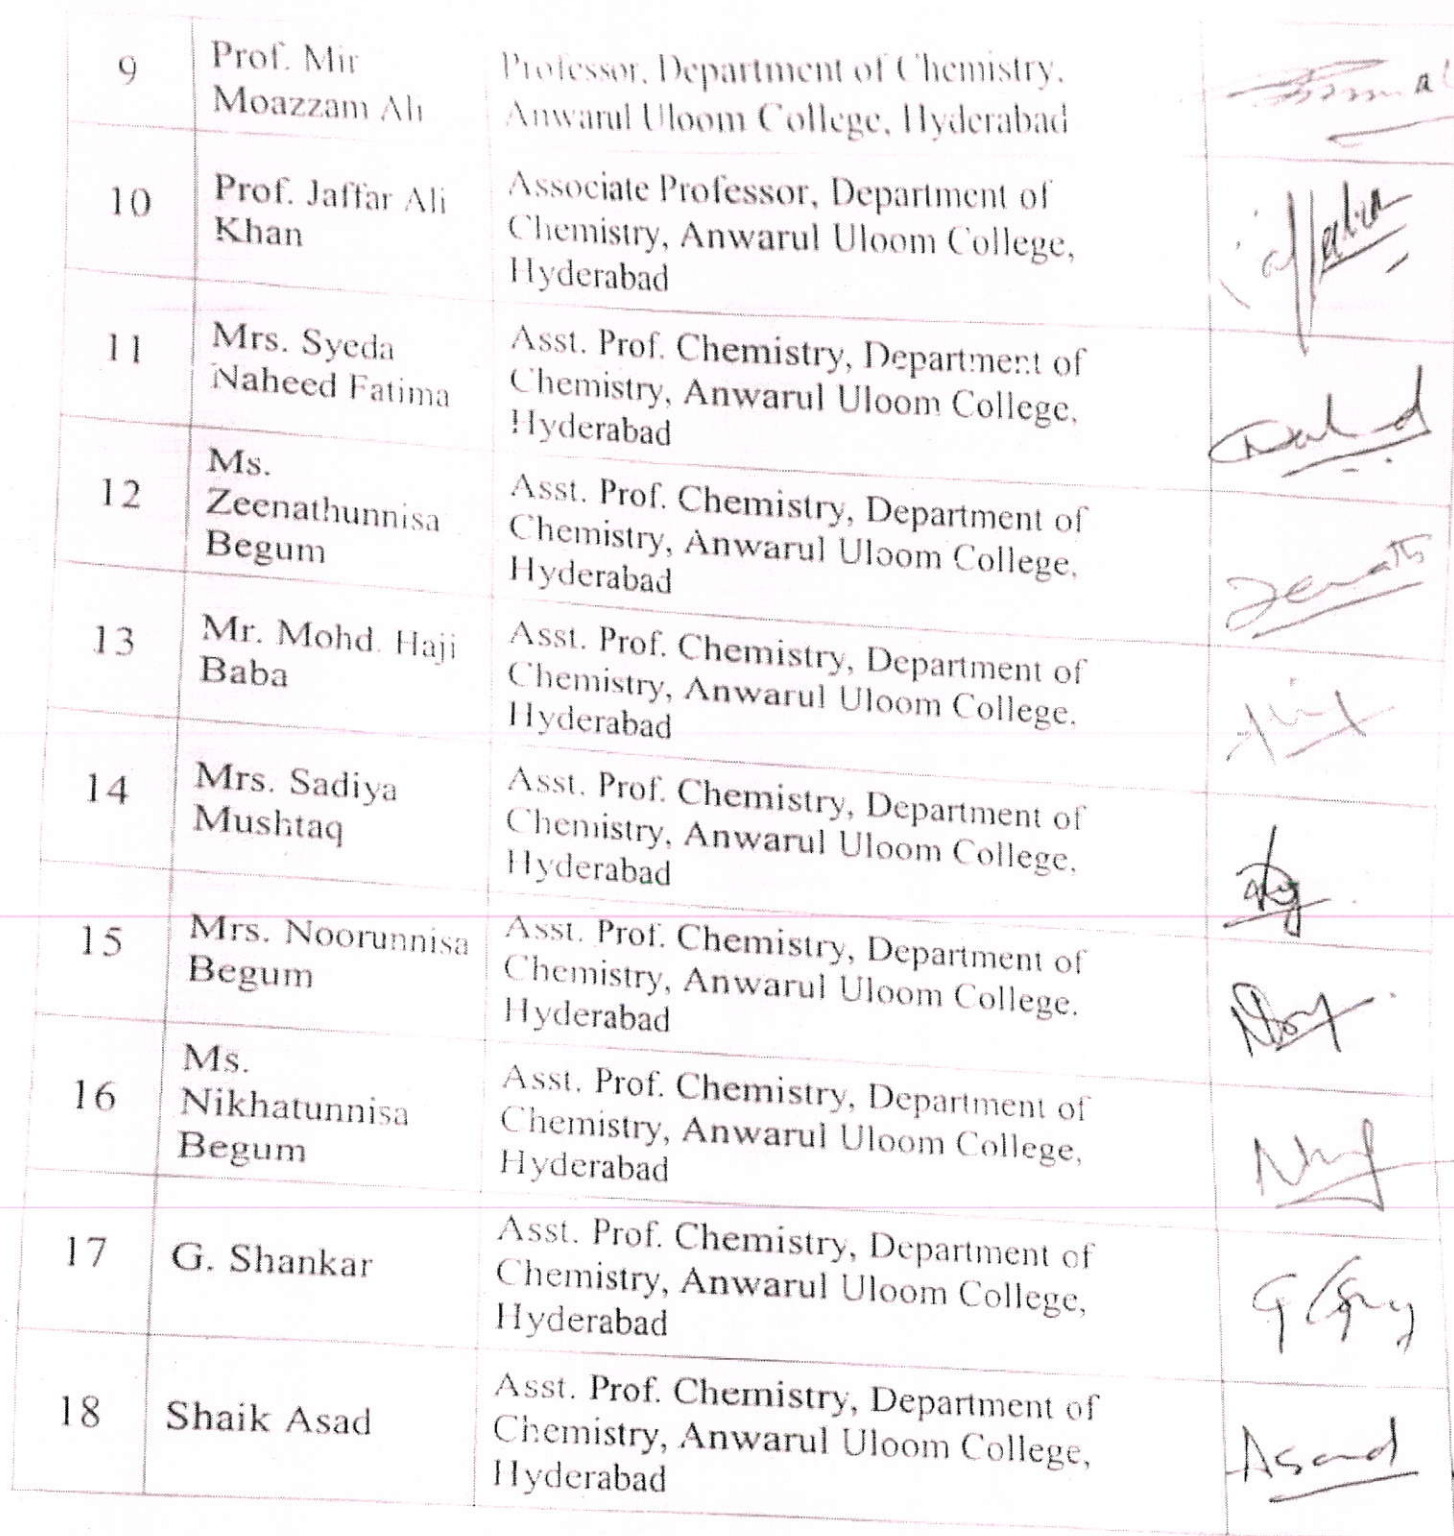 9
Prof. Mir
Moazzam Ali
Professor, Department of Chemistry,
Anwarul Uloom College, Hyderabad
10
Prof. Jaffar Ali
Khan
Associate Professor, Department of
Chemistry, Anwarul Uloom College,
Hyderabad
11
Mrs. Syeda
Naheed Fatima
Asst. Prof. Chemistry, Department of
Chemistry, Anwarul Uloom College,
Hyderabad
12
Ms.
Zeenathunnisa
Begum
Asst. Prof. Chemistry, Department of
Chemistry, Anwarul Uloom College,
Hyderabad
13
Mr. Mohd. Haji
Baba
Asst. Prof. Chemistry, Department of
Chemistry, Anwarul Uloom College,
Hyderabad
14
Mrs. Sadiya
Mushtaq
Asst. Prof. Chemistry, Department of
Chemistry, Anwarul Uloom College,
Hyderabad
15
Mrs. Noorunnisa
Begum
Asst. Prof. Chemistry, Department of
Chemistry, Anwarul Uloom College.
Hyderabad
16
Ms.
Nikhatunnisa
Begum
Asst. Prof. Chemistry, Department of
Chemistry, Anwarul Uloom College,
Hyderabad
17
G. Shankar
Asst. Prof. Chemistry, Department of
Chemistry, Anwarul Uloom College,
Hyderabad
18
Shaik Asad
Asst. Prof. Chemistry, Department of
Chemistry, Anwarul Uloom College,
Hyderabad
Asad